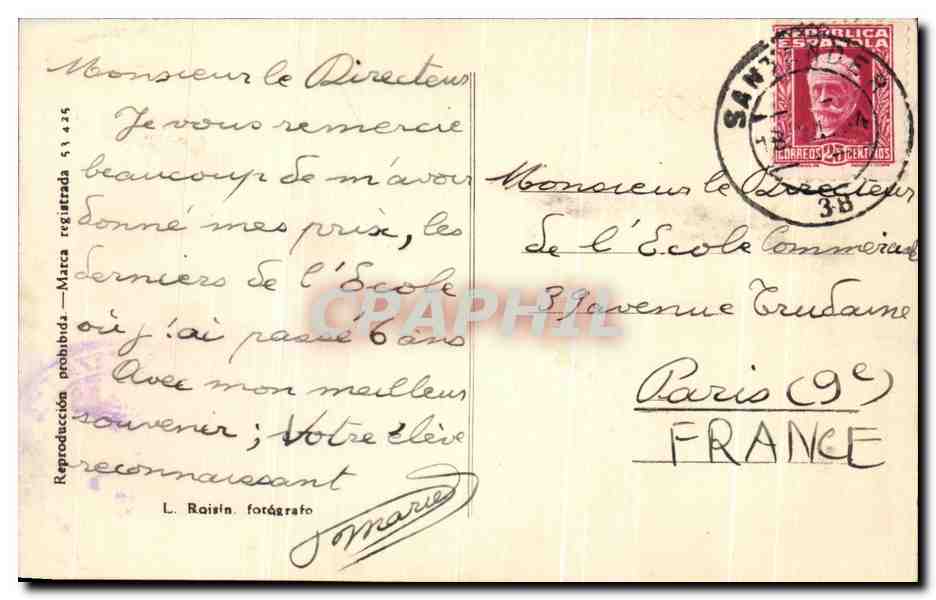 Monsieur le Directeur
Je vous remercie
beaucoup de m'avoir
donné mes prix, les
derniers de l'École
où j'ai passé 6 ans
Avec mon meilleur
souvenir; Votre élève
reconnaissant
L. Roisin. fotógrafo
Reproducción prohibida.—Marca registrada 53 425
REPÚBLICA
ESPAÑOLA
CORREOS 25 CENTIMOS
SANTANDER
3-B
Monsieur le Directeur
de l'École Commerciale
39 avenue Trudaine
Paris (9e)
FRANCE
CPAPHIL